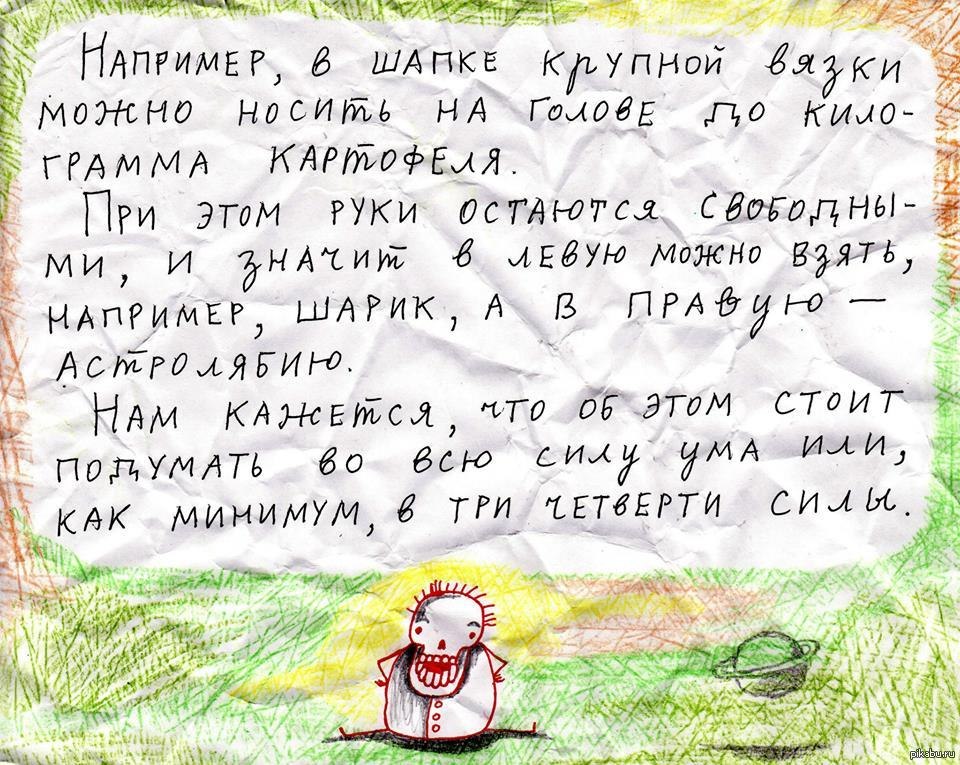 Например, в шапке крупной вязки
можно носить на голове до кило-
грамма картофеля.
При этом руки остаются свободны-
ми, и значит в левую можно взять,
например, шарик, а в правую —
астролябию.
Нам кажется, что об этом стоит
подумать во всю силу ума или,
как минимум, в три четверти силы.
pikabu.ru